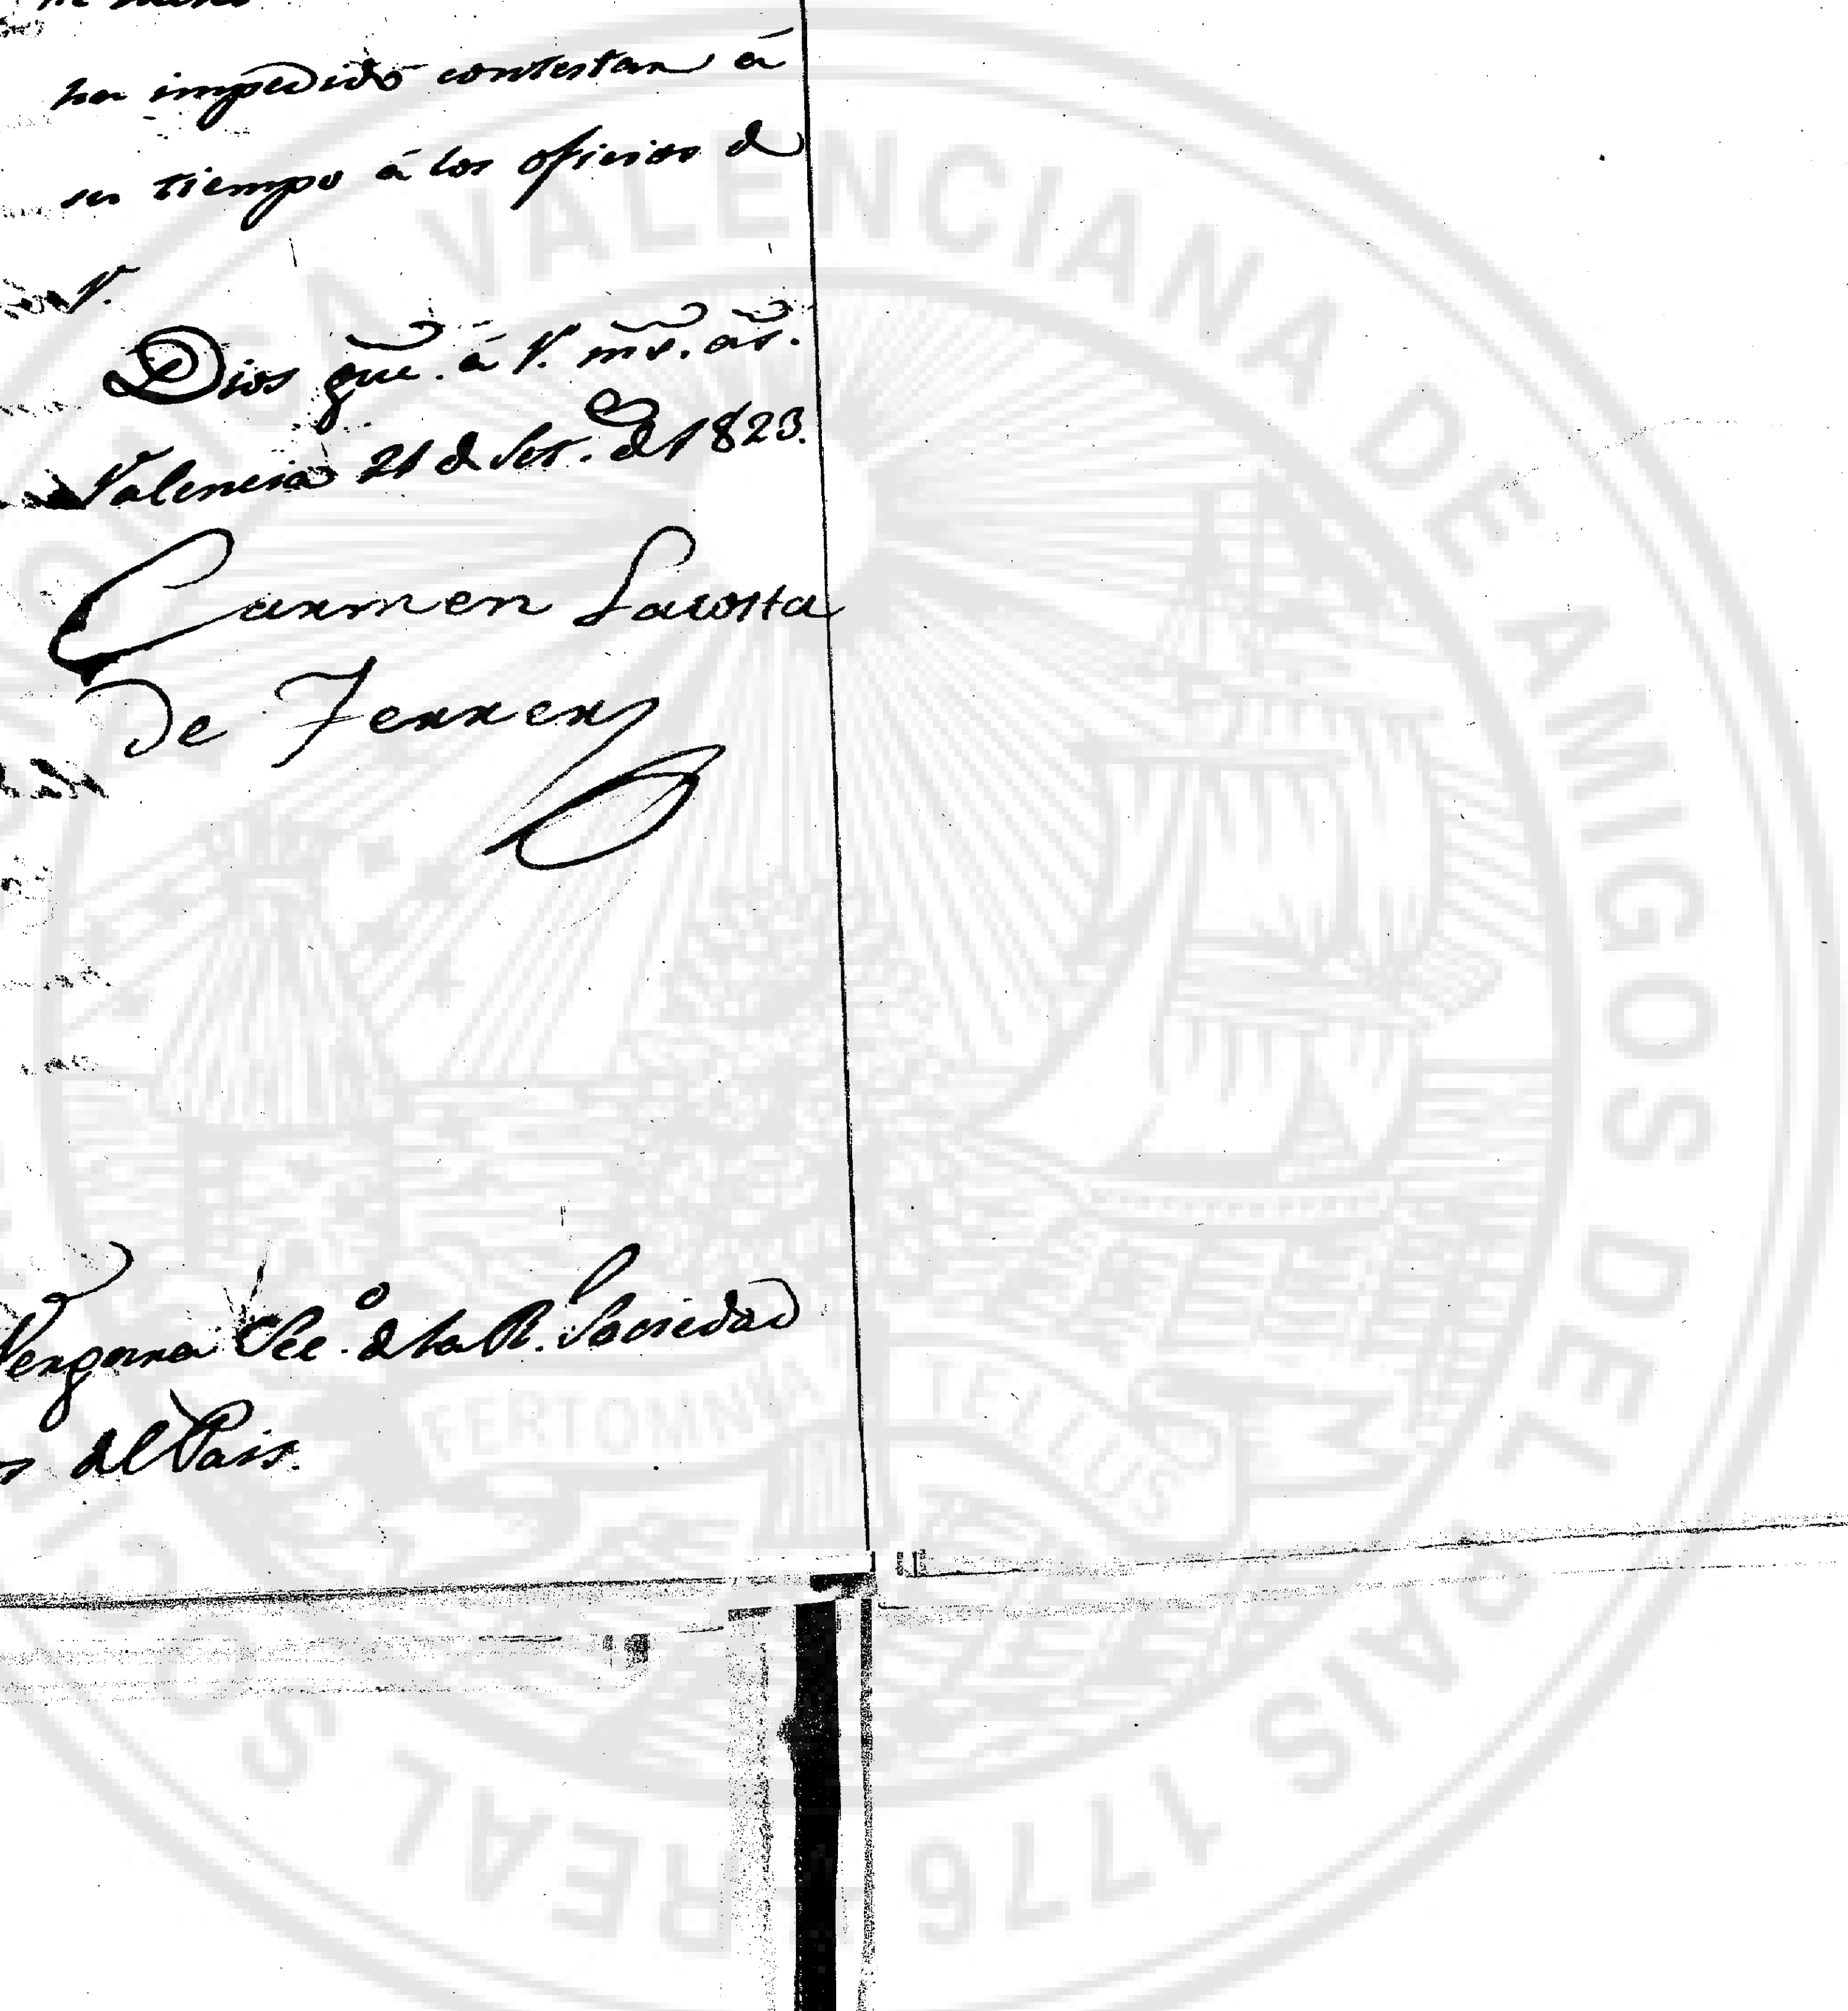 ha impedido contestar á
su tiempo á los oficios de
V.
Dios gue. á V. ms. as.
Valencia 21 de Set.e de 1823.
Carmen Lacosta
De Ferrer
Vergara Sec.o de la R.l Sociedad
del Pais.
VALENCIANA DE AMIGOS DEL PAIS 1776 REAL
FERT OMNIA